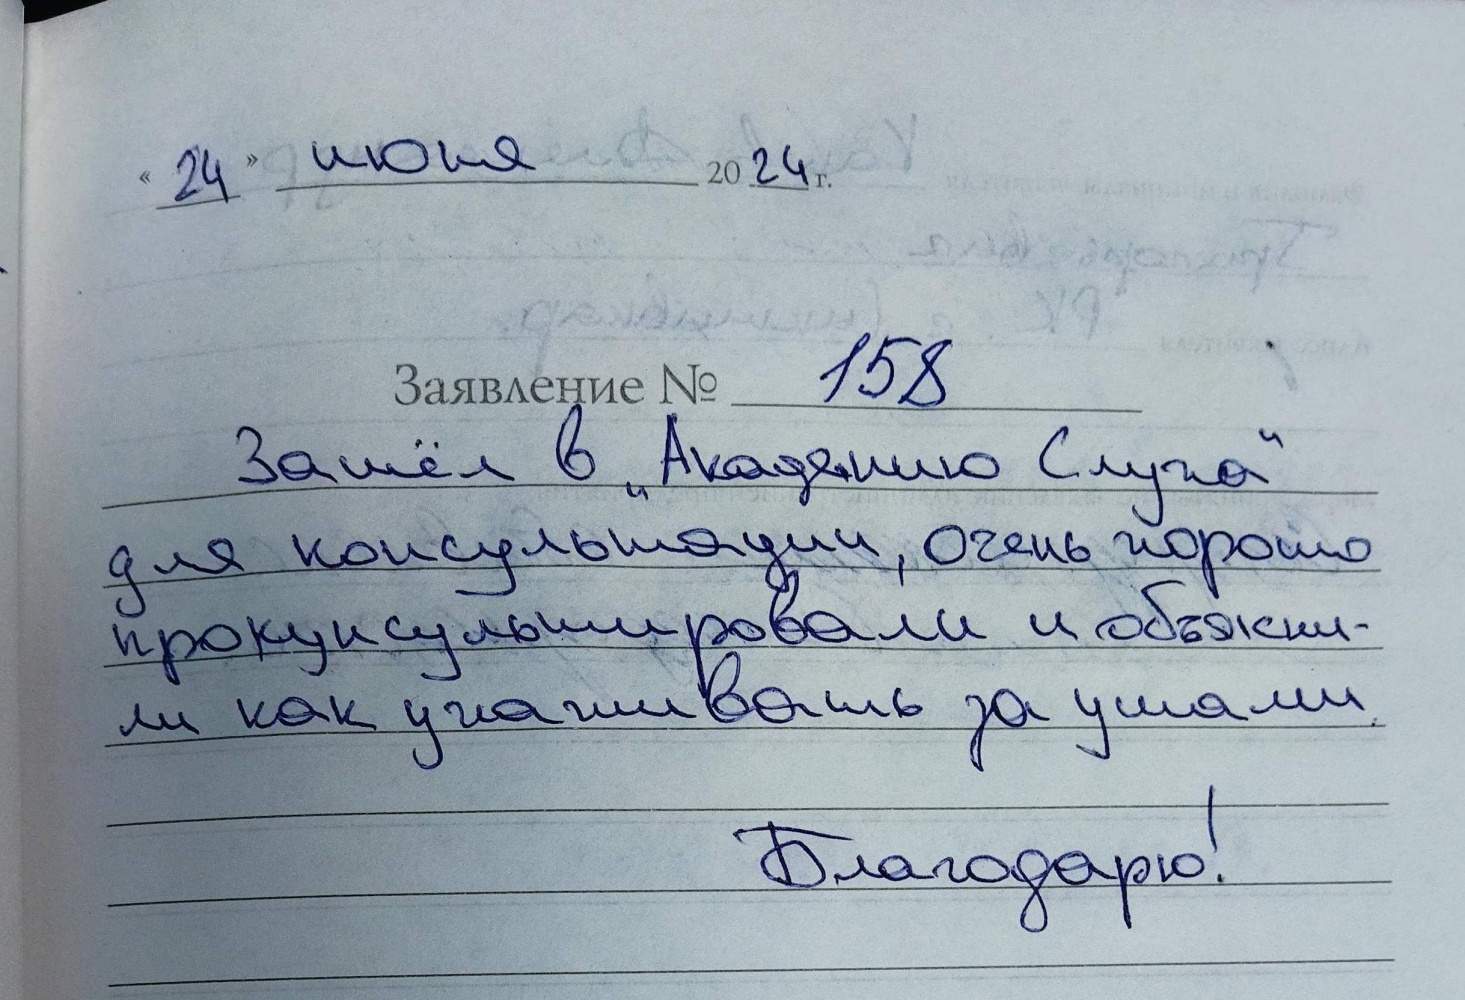 « 24 » июня 2024 г.
Заявление № 158
Зашёл в „Академию Слуха“
для консультации, очень хорошо
прокунсультировали и объясни-
ли как ухаживать за ушами.
Благодарю!